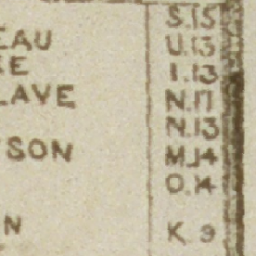 S.15
EAU U.13
KE I.13
LAVE N.17
N.13
SON M.14
O.14
N K 9